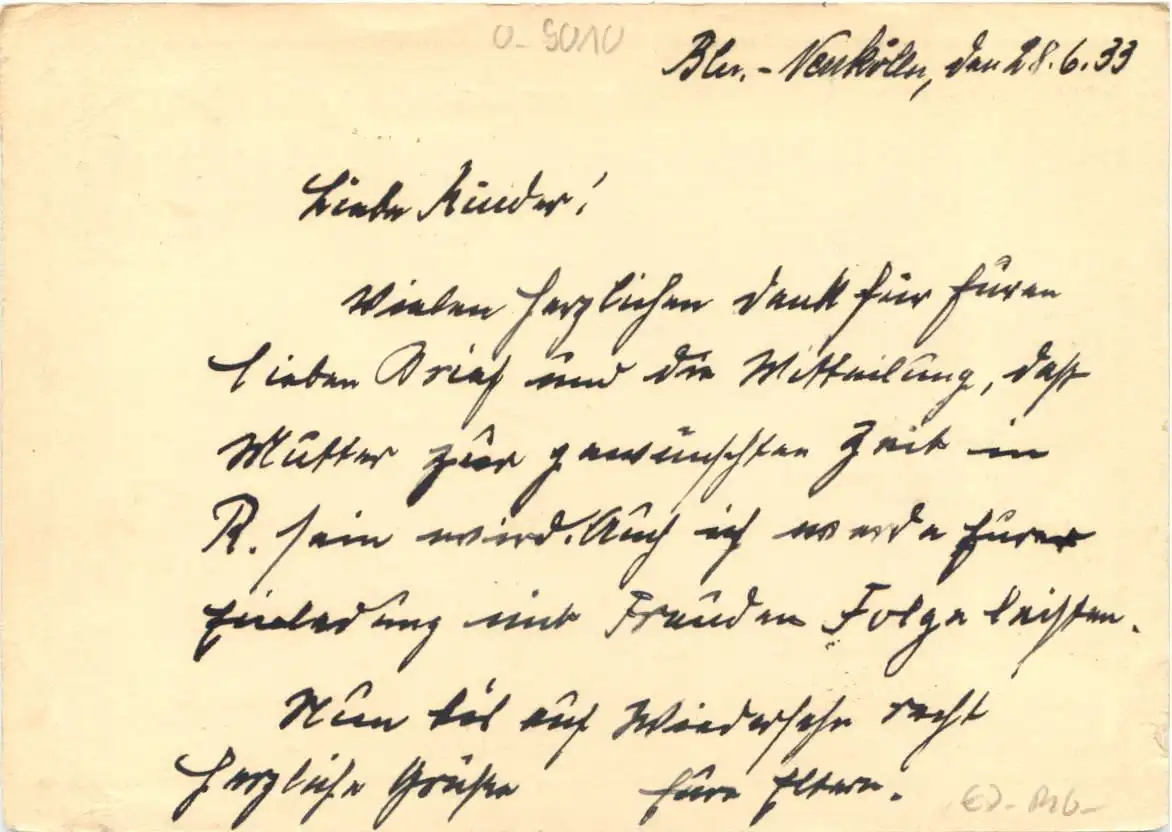 0-5010
Bln.-Neukölln, den 28.6.33
Liebe Kinder!
Vielen herzlichen Dank für Euren
lieben Brief und die Mitteilung, daß
Mutter zur gewünschten Zeit in
R. sein wird. Auch ich werde Eurer
Einladung mit Freuden Folge leisten.
Nun bis auf Wiedersehn recht
herzliche Grüße Eure Eltern.